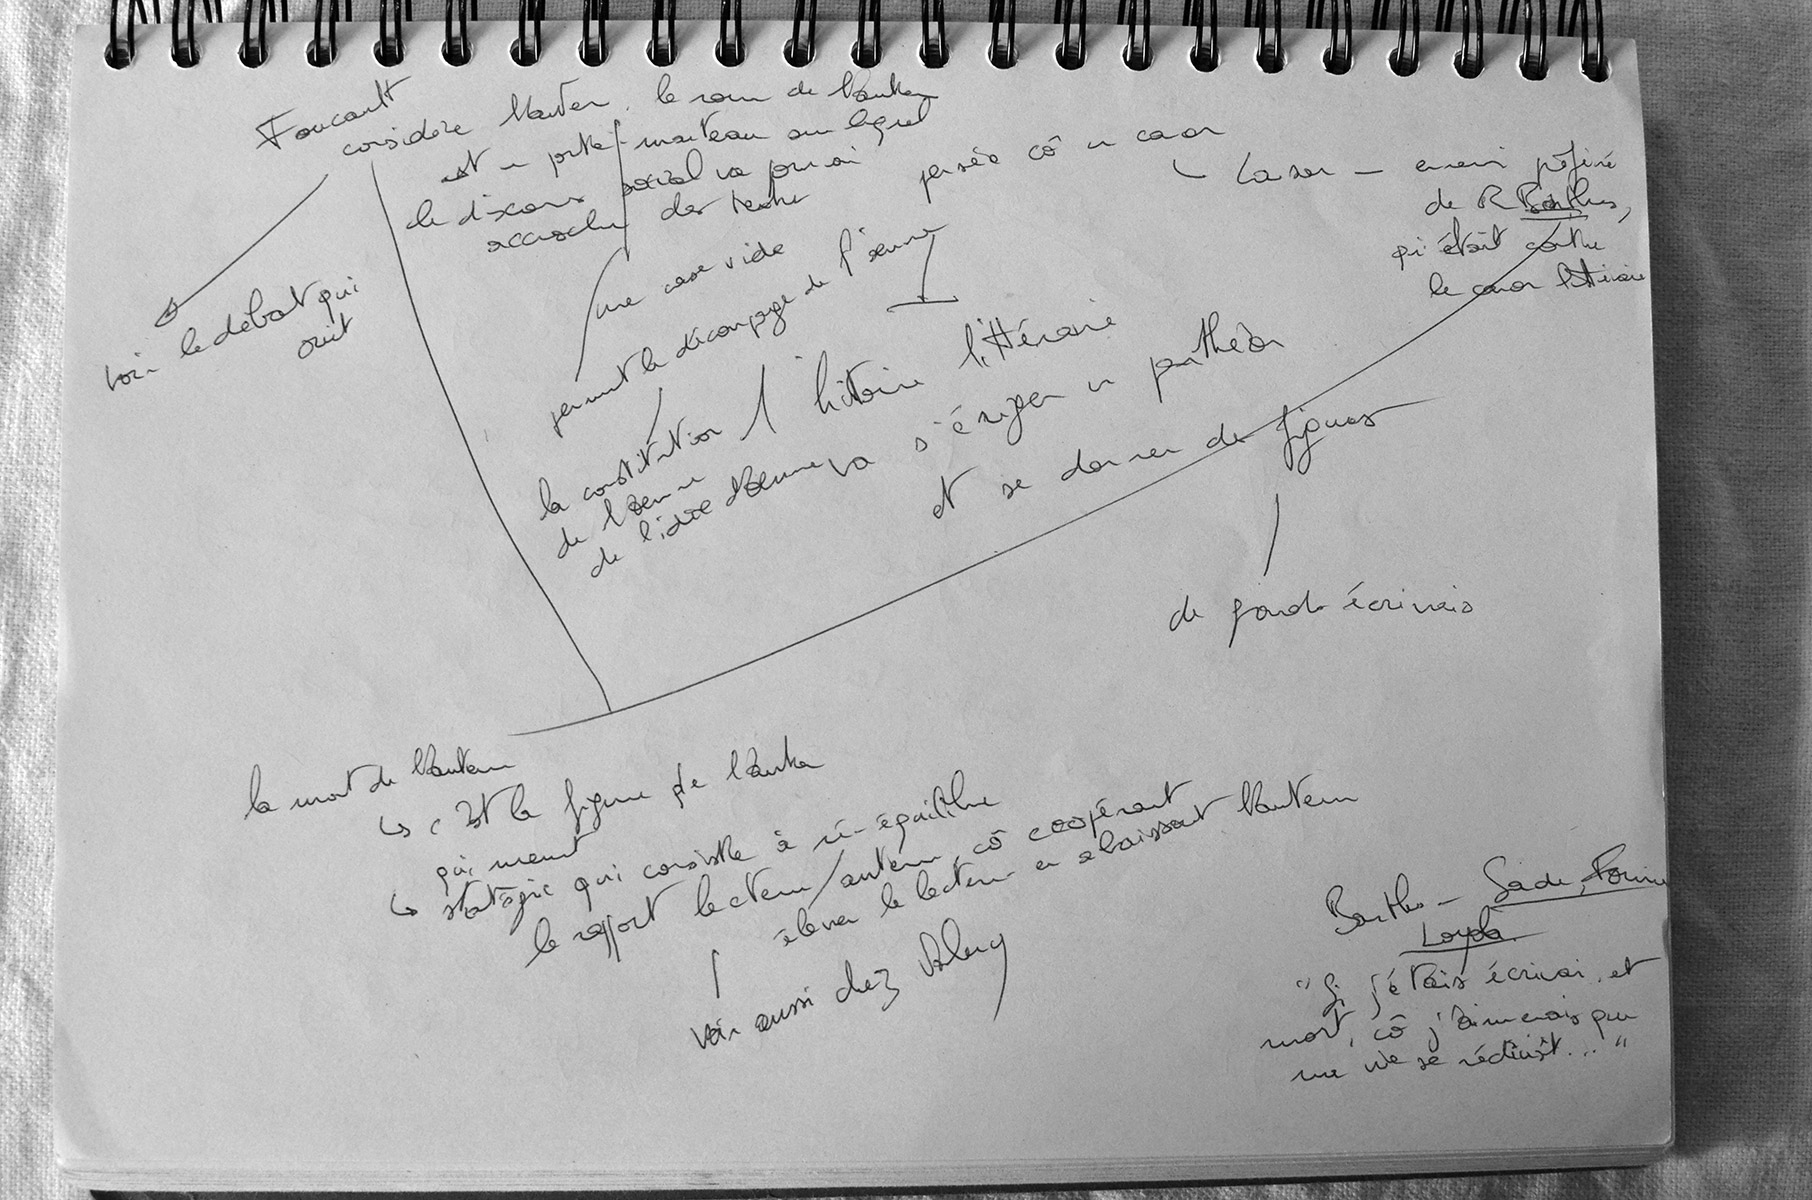 Foucault
considère l'auteur. le nom de l'auteur
est un porte-manteau sur lequel
le discours social va pouvoir
accrocher des textes
pensée cô un canon
Lanson – ennemi préféré
de R Barthes,
qui était contre
le canon littéraire
voir le débat qui
suit
une case vide
permet le découpage de l'œuvre
la constitution
de l'œuvre
de l'idée d'œuvre
l'histoire littéraire
va s'ériger un panthéon
et se donner des figures
de grands écrivains
la mort de l'auteur
↳ c'est la figure de l'auteur
qui meurt
↳ stratégie qui consiste à ré-équilibre
le rapport lecteur/auteur, cô coopérant
élever le lecteur en abaissant l'auteur
voir aussi chez Valery
Barthes – Sade, Fourier
Loyola.
"Si j'étais écrivain, et
mort, cô j'aimerais que
ma vie se réduisît... "